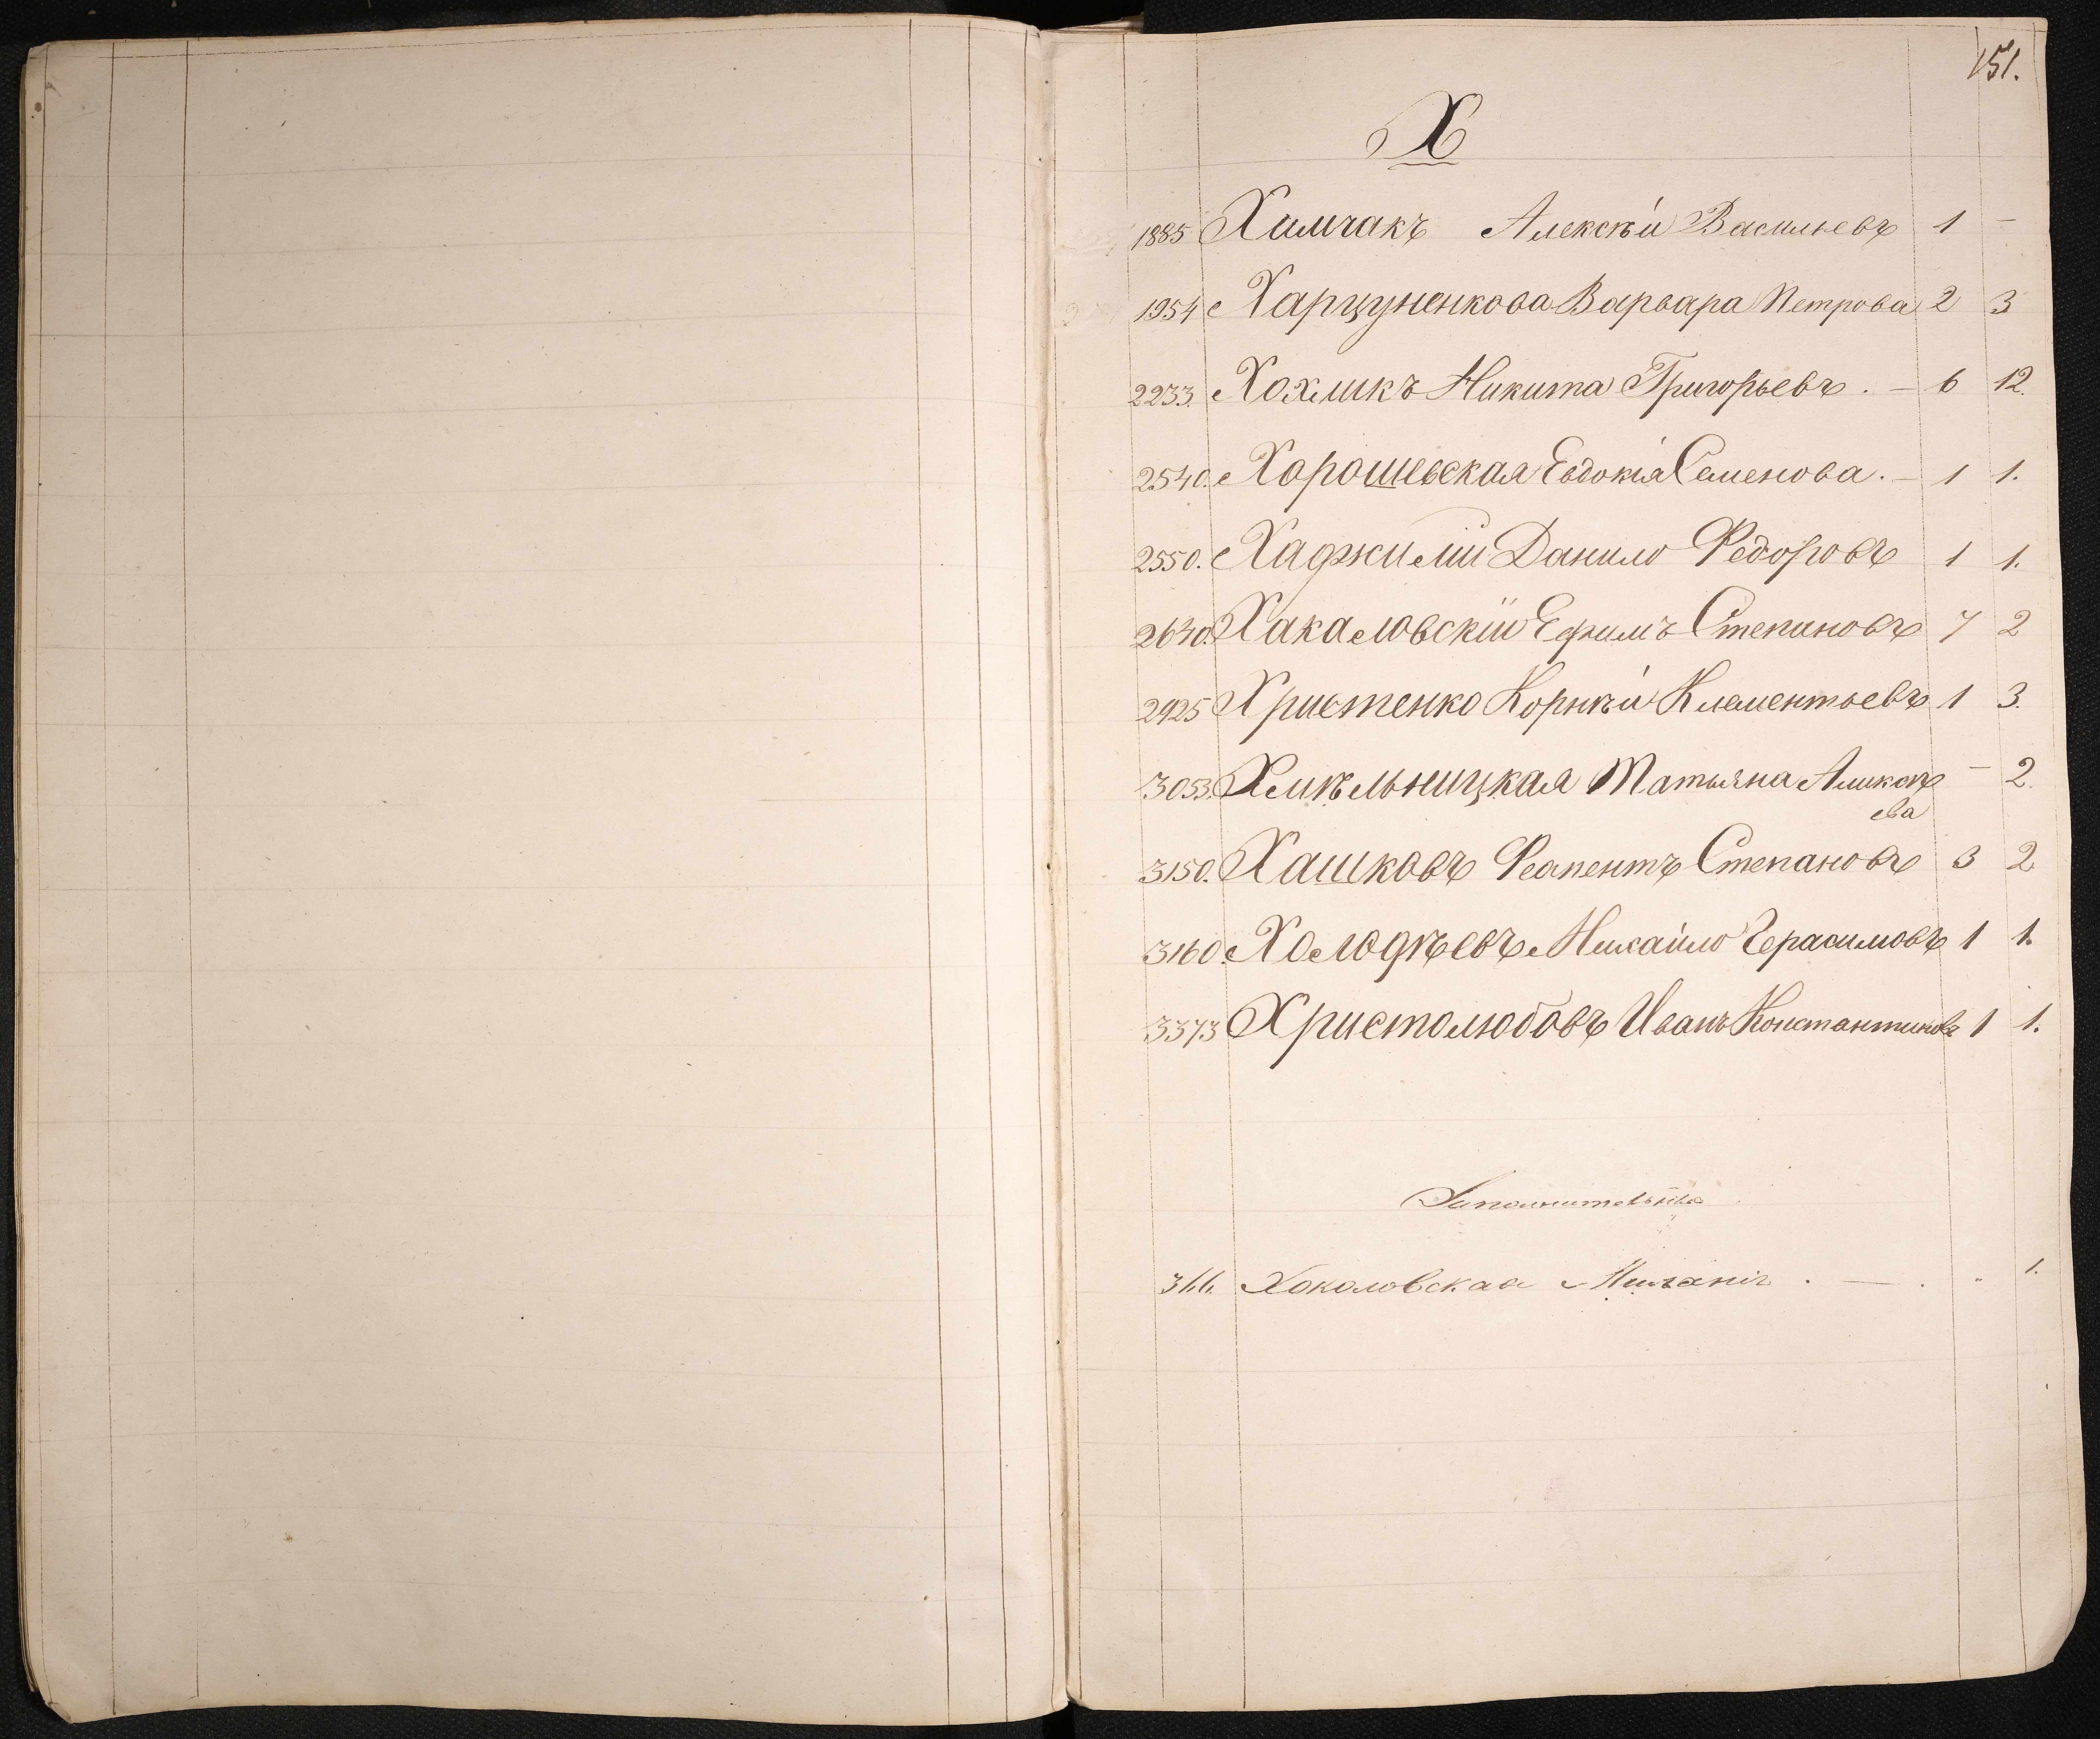 151.
Х
1885 Химчакъ Алексѣй Васильевъ 1 —
1954 Харцуненкова Варвара Петрова 2 3
2233. Хохликъ Никита Григорьевъ. — 6 12.
2540. Хорошевская Евдокія Семенова. — 1 1.
2550. Хаджили Данило Федоровъ 1 1.
2640. Хакаловскій Ефимъ Степановъ 7 2
2925 Христенко Корнѣй Клементьевъ 1 3.
3053. Хмѣльницкая Татьяна Алексѣ — 2.
ева
3150. Хашковъ Феопентъ Степановъ 3 2
3160. Холодѣевъ Михайло Герасимовъ 1 1.
3373 Христолюбовъ Иванъ Константиновъ 1 1.
366. Хоколовская . — . " 1.